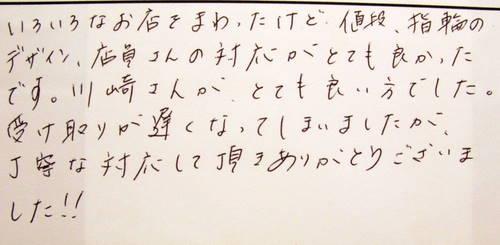 いろいろなお店をまわったけど、値段、指輪の
デザイン、店員さんの対応がとても良かった
です。川崎さんが、とても良い方でした。
受け取りが遅くなってしまいましたが、
丁寧な対応して頂きありがとうございま
した!!